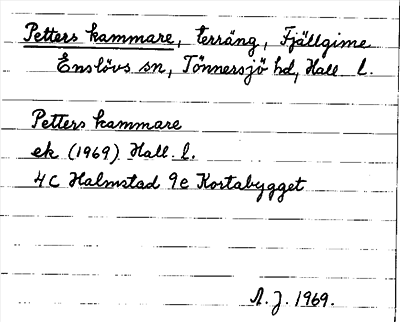 Petters kammare, terräng, Fjällgime
Enslövs sn, Tönnersjö hd, Hall. l.
Petters kammare
ek (1969) Hall. l.
4C Halmstad 9e Kortabygget
A. J. 1969.